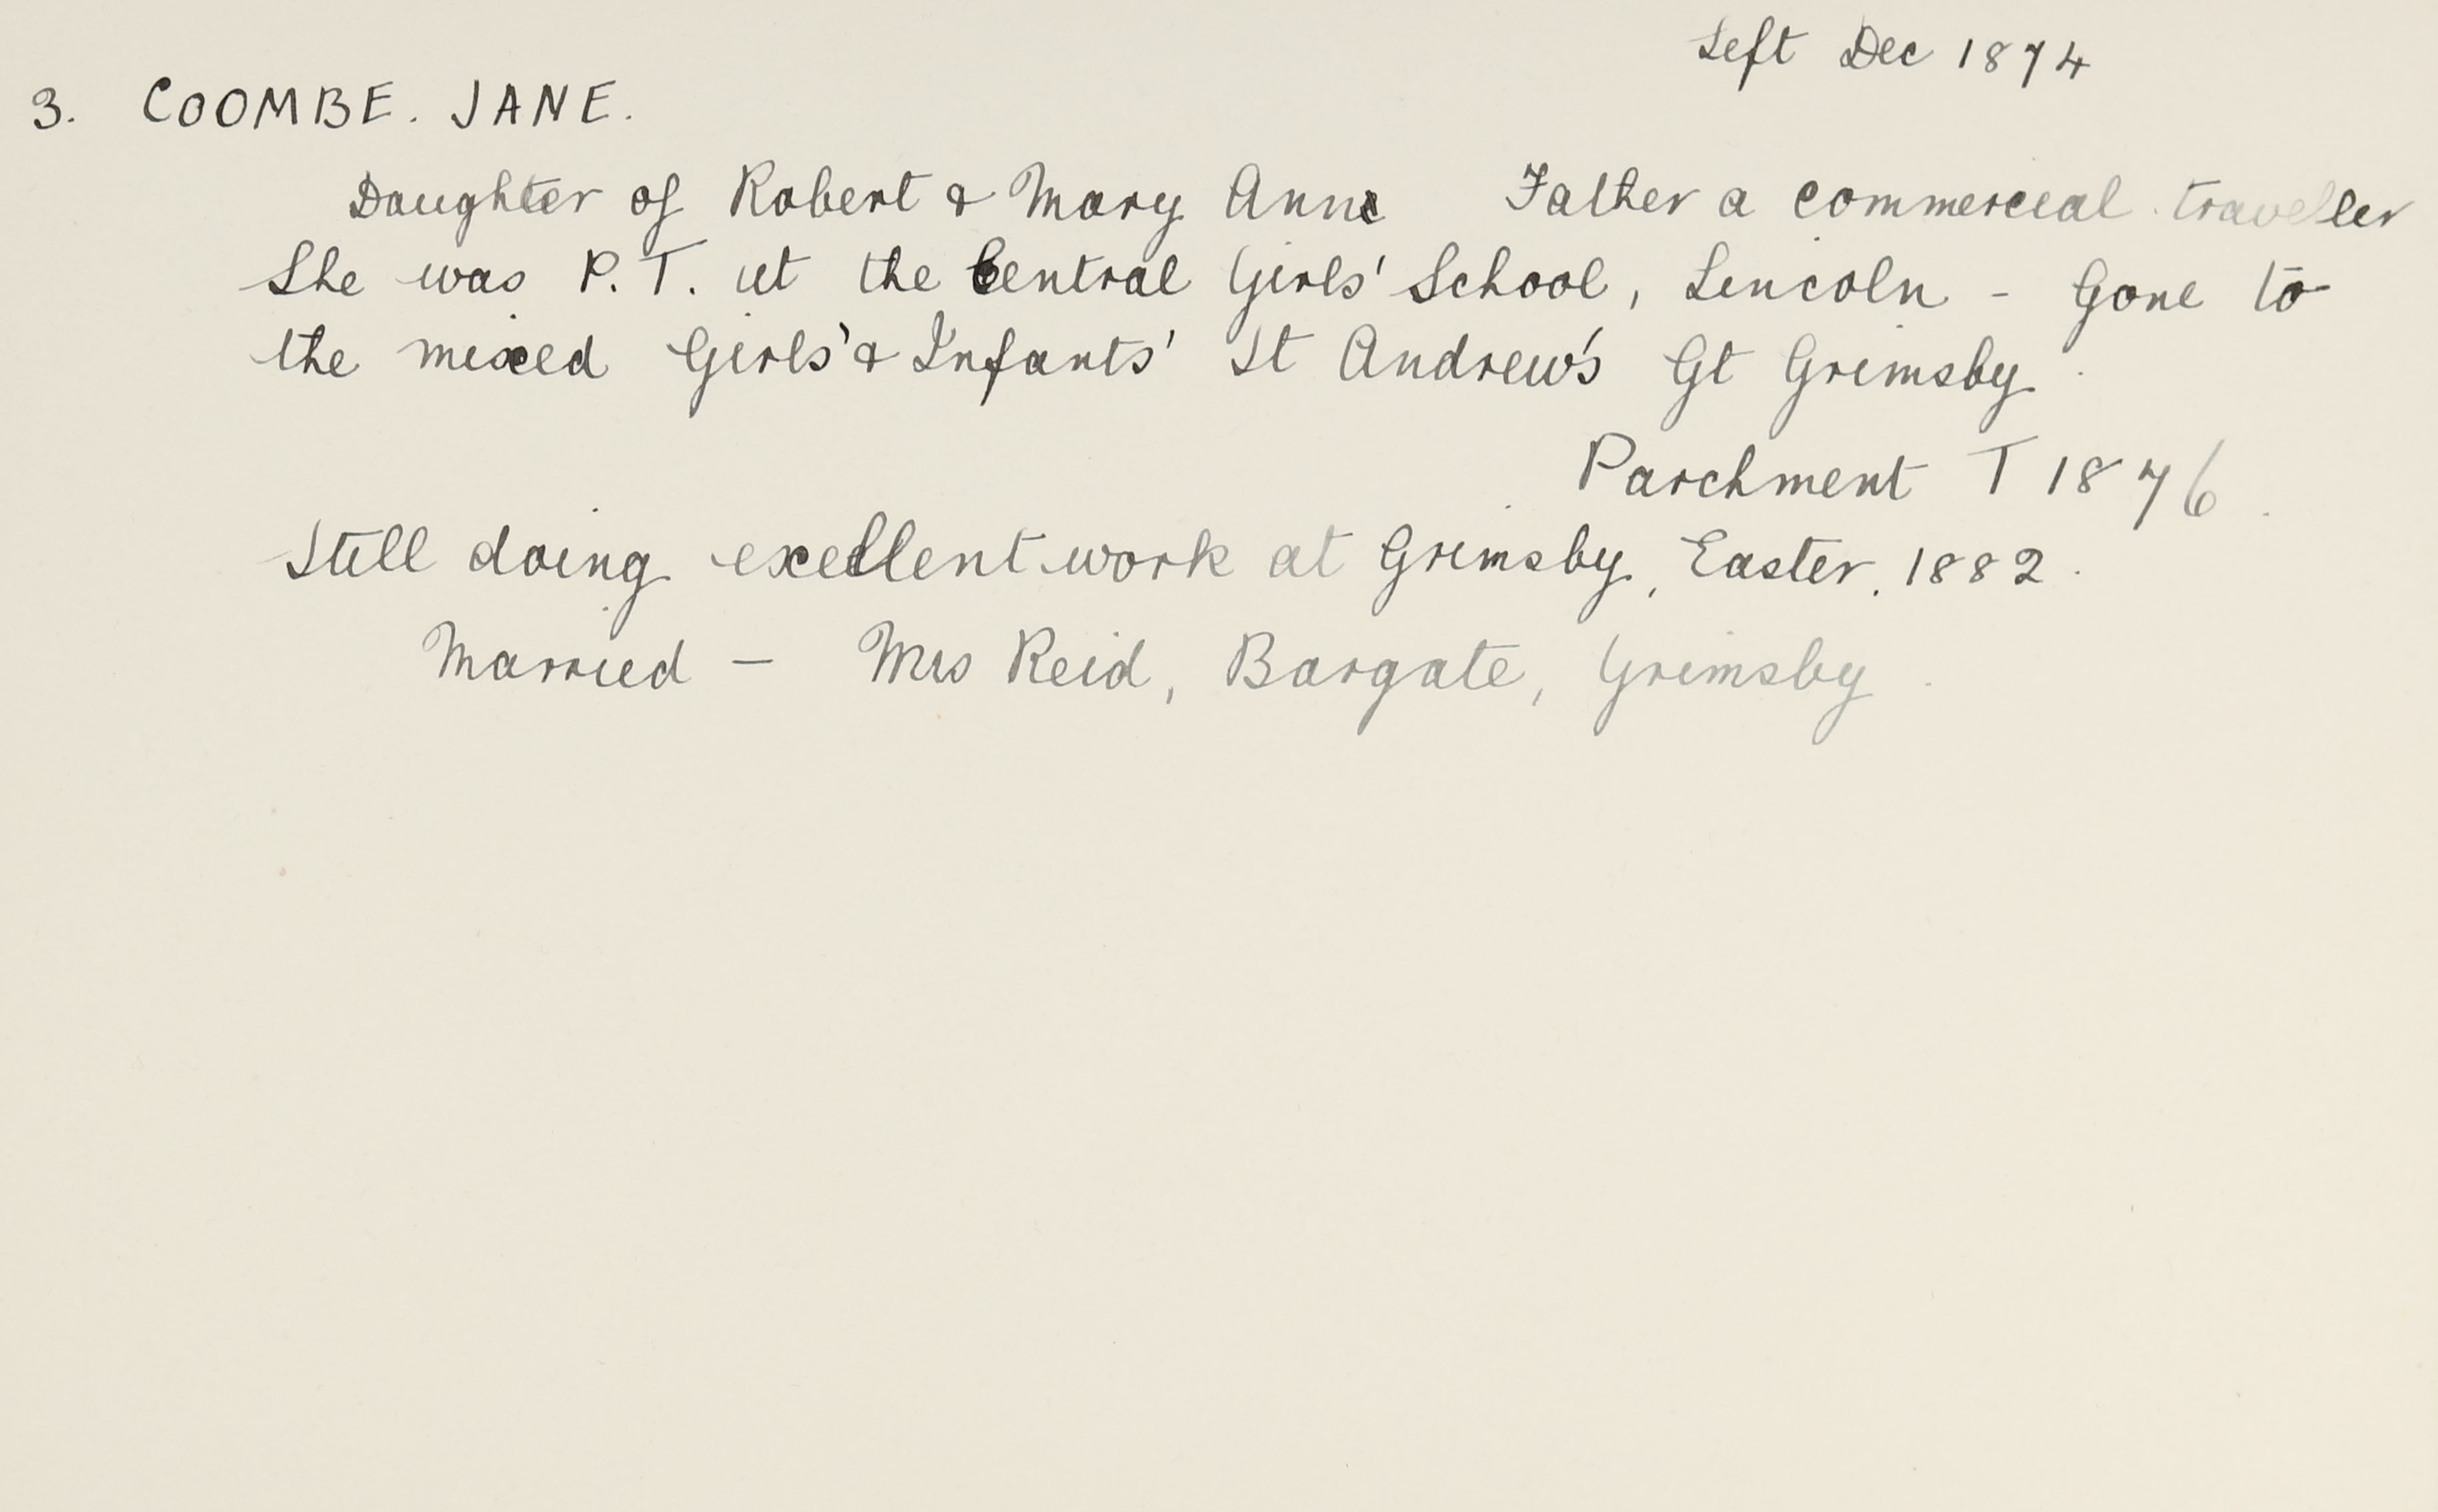 Left Dec 1874
3. COOMBE. JANE.
Daughter of Robert & Mary Anne Father a commercial traveller
She was P.T. at the Central Girls' School, Lincoln - Gone to
the mixed Girls' & Infants' St Andrew's Gt Grimsby.
Parchment T 1876.
Still doing excellent work at Grimsby, Easter, 1882.
Married - Mrs Reid, Bargate, Grimsby.